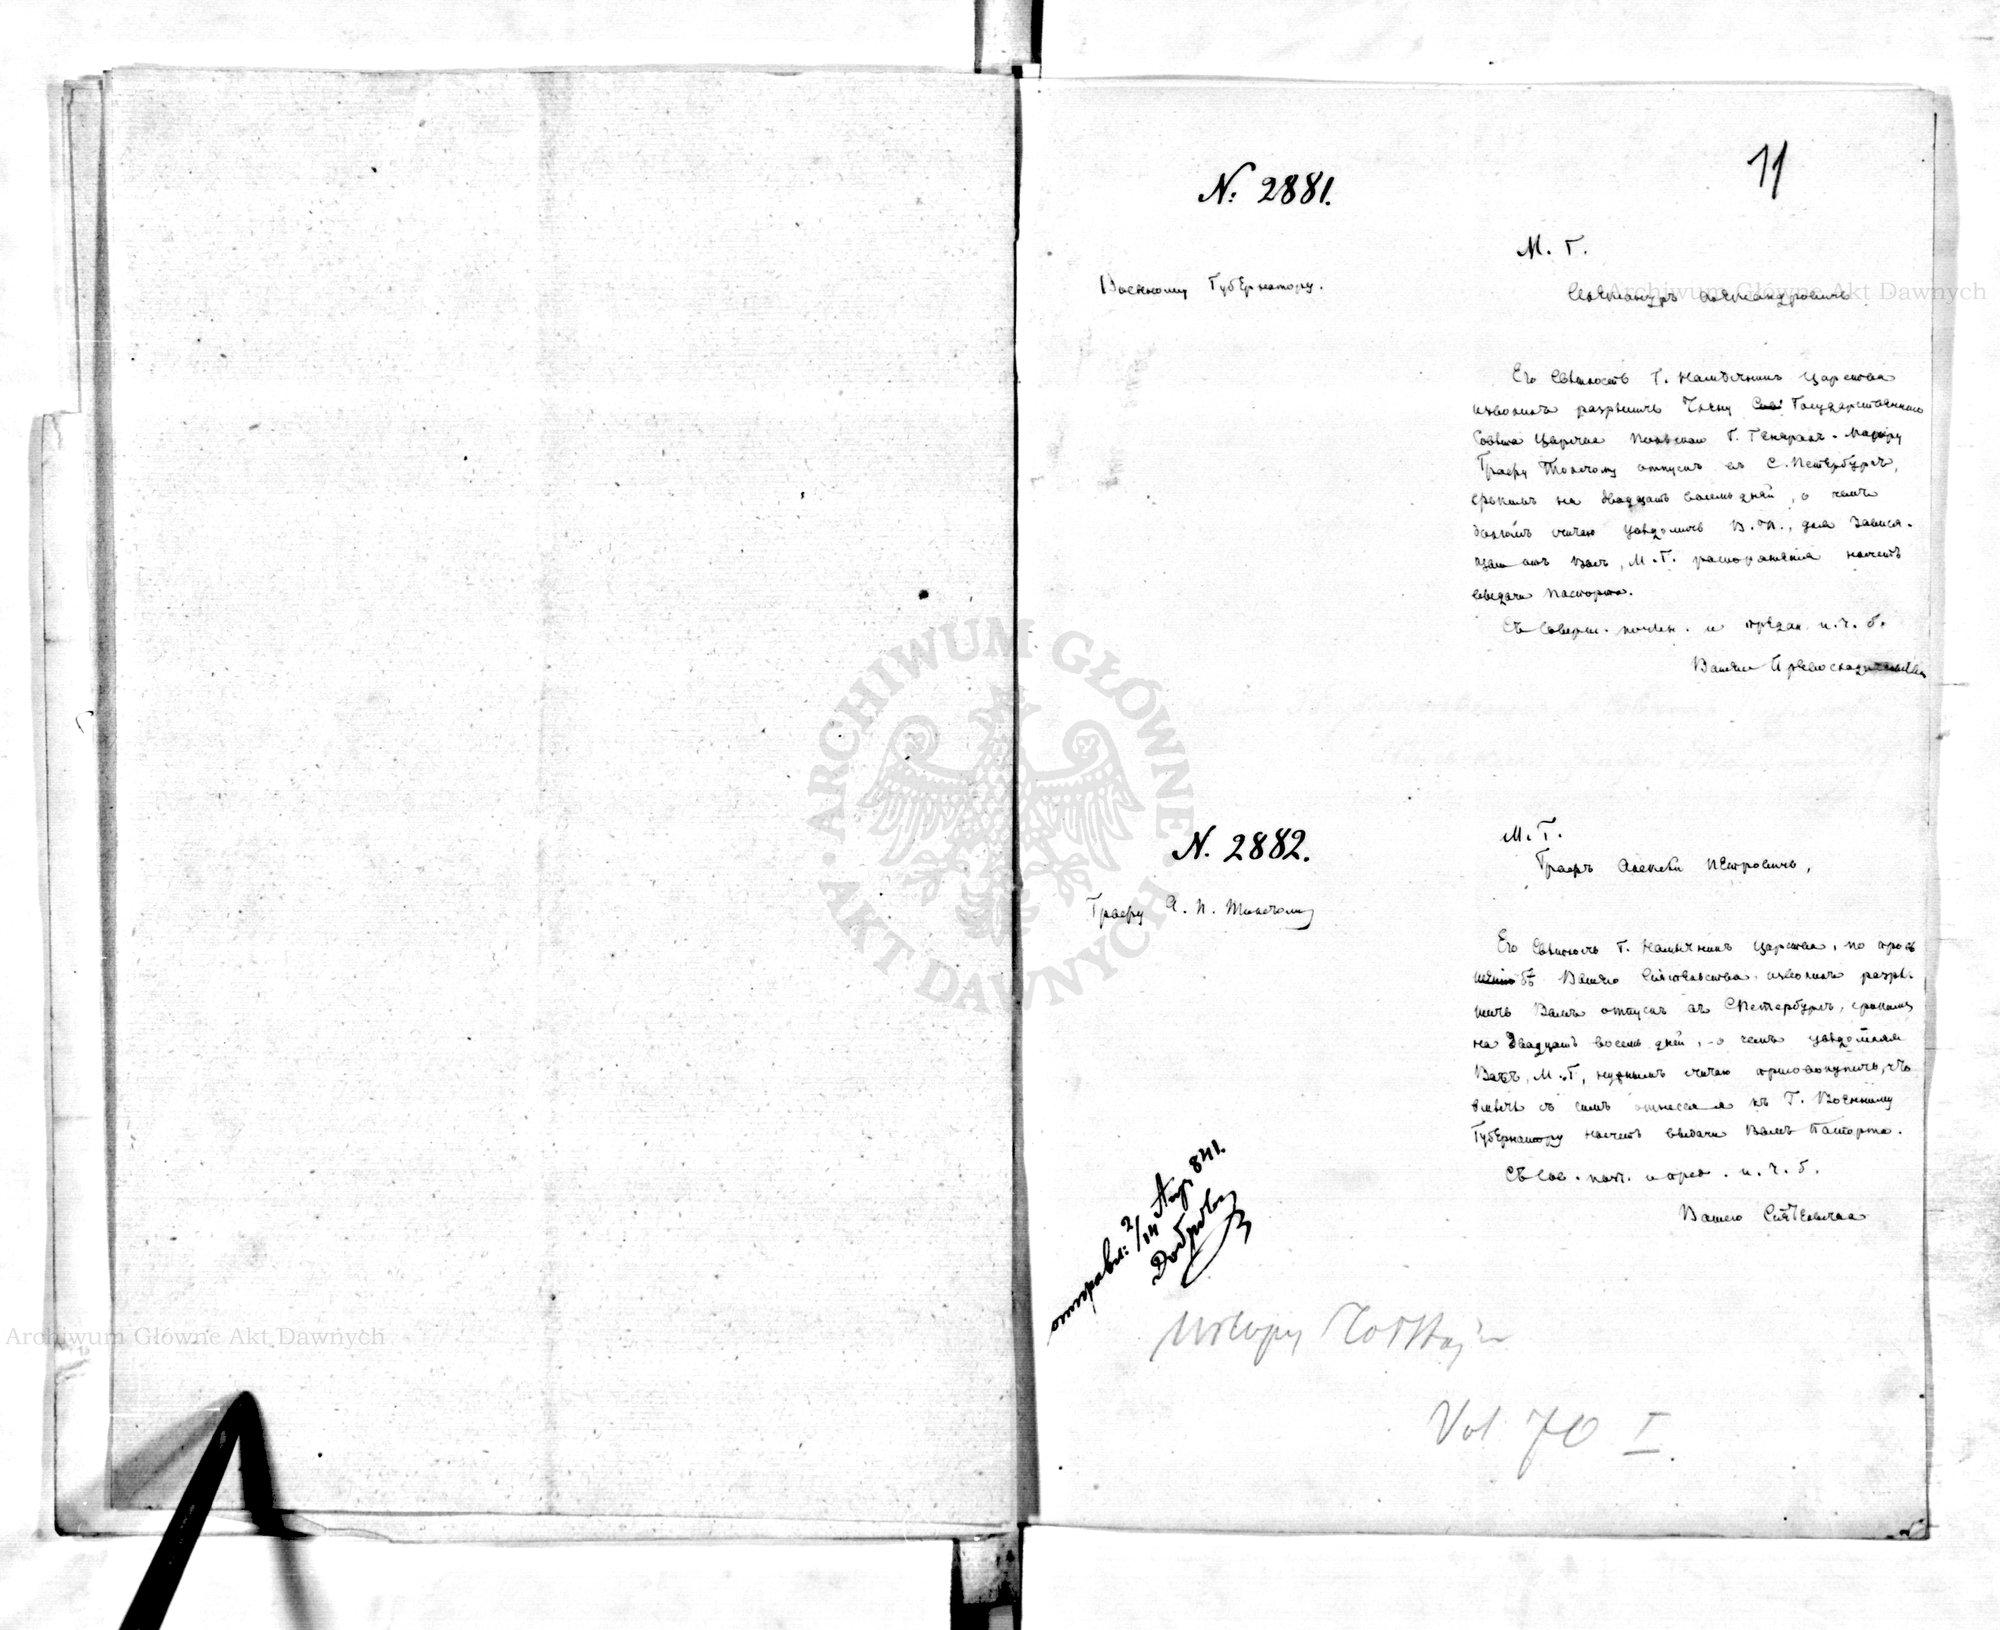 11
N: 2881.
Военному Губернатору.
М. Г.
Александръ Александровичъ
Его Свѣтлость Г. Намѣстникъ Царства
изволилъ разрѣшить Члену Государственнаго
Совѣта Царства Польскаго Г. Генералъ-Маіору
Графу Толстому отпускъ въ С. Петербургъ,
срокомъ на двадцать восемь дней, о чемъ
долгомъ считаю увѣдомить В. П., для завися-
щаго отъ Васъ, М. Г. распоряженія насчетъ
выдачи паспорта.
Съ соверш. почтен. и предан. и. ч. б.
Вашего Превосходительства
N. 2882.
Графу А. П. Толстому
М. Г.
Графъ Алексѣй Петровичъ,
Его Свѣтлость Г. Намѣстникъ Царства, по прось
бѣ Вашего Сіятельства изволилъ разрѣ-
шить Вамъ отпускъ въ СПетербургъ, срокомъ
на двадцать восемь дней, о чемъ увѣдомляя
Васъ, М. Г., нужнымъ считаю присовокупить, что
вмѣстѣ съ симъ отнесся я къ Г. Военному
Губернатору насчетъ выдачи Вамъ паспорта.
Съ сов. поч. и пред. и. ч. б.
Вашего Сіятельства
отправл: 2/14 Апр. 841.
Vol 70 I
ARCHIWUM GŁÓWNE AKT DAWNYCH
Archiwum Główne Akt Dawnych
Archiwum Główne Akt Dawnych